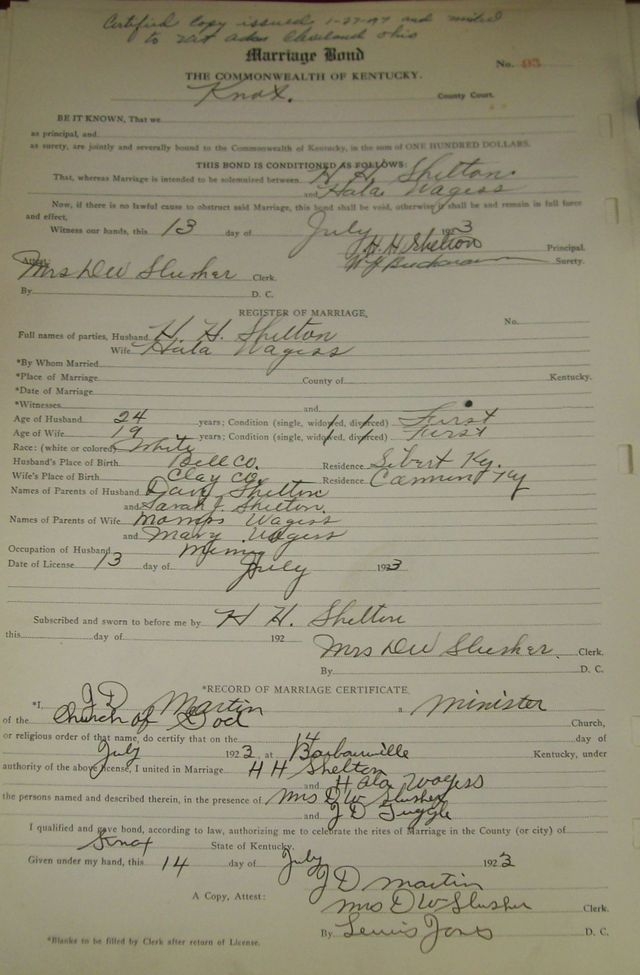 Certified Copy issued 1-27-47 and mailed
to Cleveland Ohio
Marriage Bond
No. 93
THE COMMONWEALTH OF KENTUCKY.
Knox. County Court.
BE IT KNOWN, That we
as principal, and
as surety, are jointly and severally bound to the Commonwealth of Kentucky, in the sum of ONE HUNDRED DOLLARS.
THIS BOND IS CONDITIONED AS FOLLOWS:
That, whereas Marriage is intended to be solemnized between H. H. Shelton
and Hala Wagess
Now, if there is no lawful cause to obstruct said Marriage, this bond shall be void, otherwise it shall be and remain in full force
and effect,
Witness our hands, this 13 day of July 1923
H. H. Shelton Principal.
Attest: Surety.
Mrs D W Slusher Clerk.
By D. C.
REGISTER OF MARRIAGE,
No.
Full names of parties, Husband H. H. Shelton
Wife Hala Wagess
*By Whom Married
*Place of Marriage County of Kentucky.
*Date of Marriage
*Witnesses and
Age of Husband 24 years; Condition (single, widowed, divorced) First
Age of Wife 19 years; Condition (single, widowed, divorced) First
Race: (white or colored) White
Husband's Place of Birth Bell Co. Residence Sibert Ky.
Wife's Place of Birth Clay Co. Residence Ky
Names of Parents of Husband Davy Shelton
and Sarah J. Shelton.
Names of Parents of Wife Wagess
and Mary Wagess
Occupation of Husband Mining
Date of License 13 day of July 1923
Subscribed and sworn to before me by H H. Shelton
this day of 192
Mrs D W Slusher. Clerk.
By D. C.
*RECORD OF MARRIAGE CERTIFICATE.
*I, J D Martin a Minister
of the Church of God Church,
or religious order of that name, do certify that on the 14 day of
July 1923, at Barbourville Kentucky, under
authority of the above license, I united in Marriage H H Shelton
and Hala Wagess
the persons named and described therein, in the presence of Mrs D W Slusher
and J D Tuggle
I qualified and gave bond, according to law, authorizing me to celebrate the rites of Marriage in the County (or city) of
Knox State of Kentucky.
Given under my hand, this 14 day of July 1923
J D Martin
A Copy, Attest: Mrs D W Slusher Clerk.
By Lewis Jones D. C.
*Blanks to be filled by Clerk after return of License.